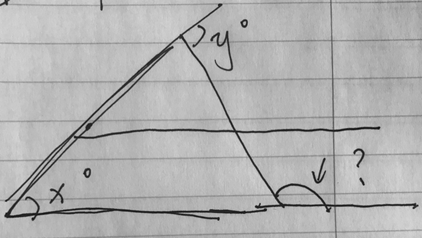 y°
x°
?